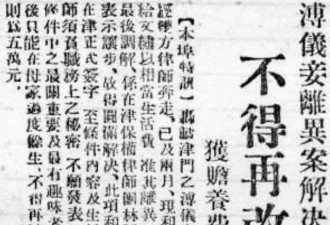 溥儀妾離異案解决
不得再改
獲贍養費
【本埠特訊】轟動津門之溥儀
經雙方律師奔走、已及兩月、現和
給文繡以相當生活費、准其離異
最後調解、係在津保權律師團林
表示讓步、故得圓滿解決、此項和
在津正式簽字 至條件內容及生
師須負職務上之秘密、不願發表
條件中之最關重要及最有趣味者
後只能在母家過度餘生、不得再
則爲五萬元。